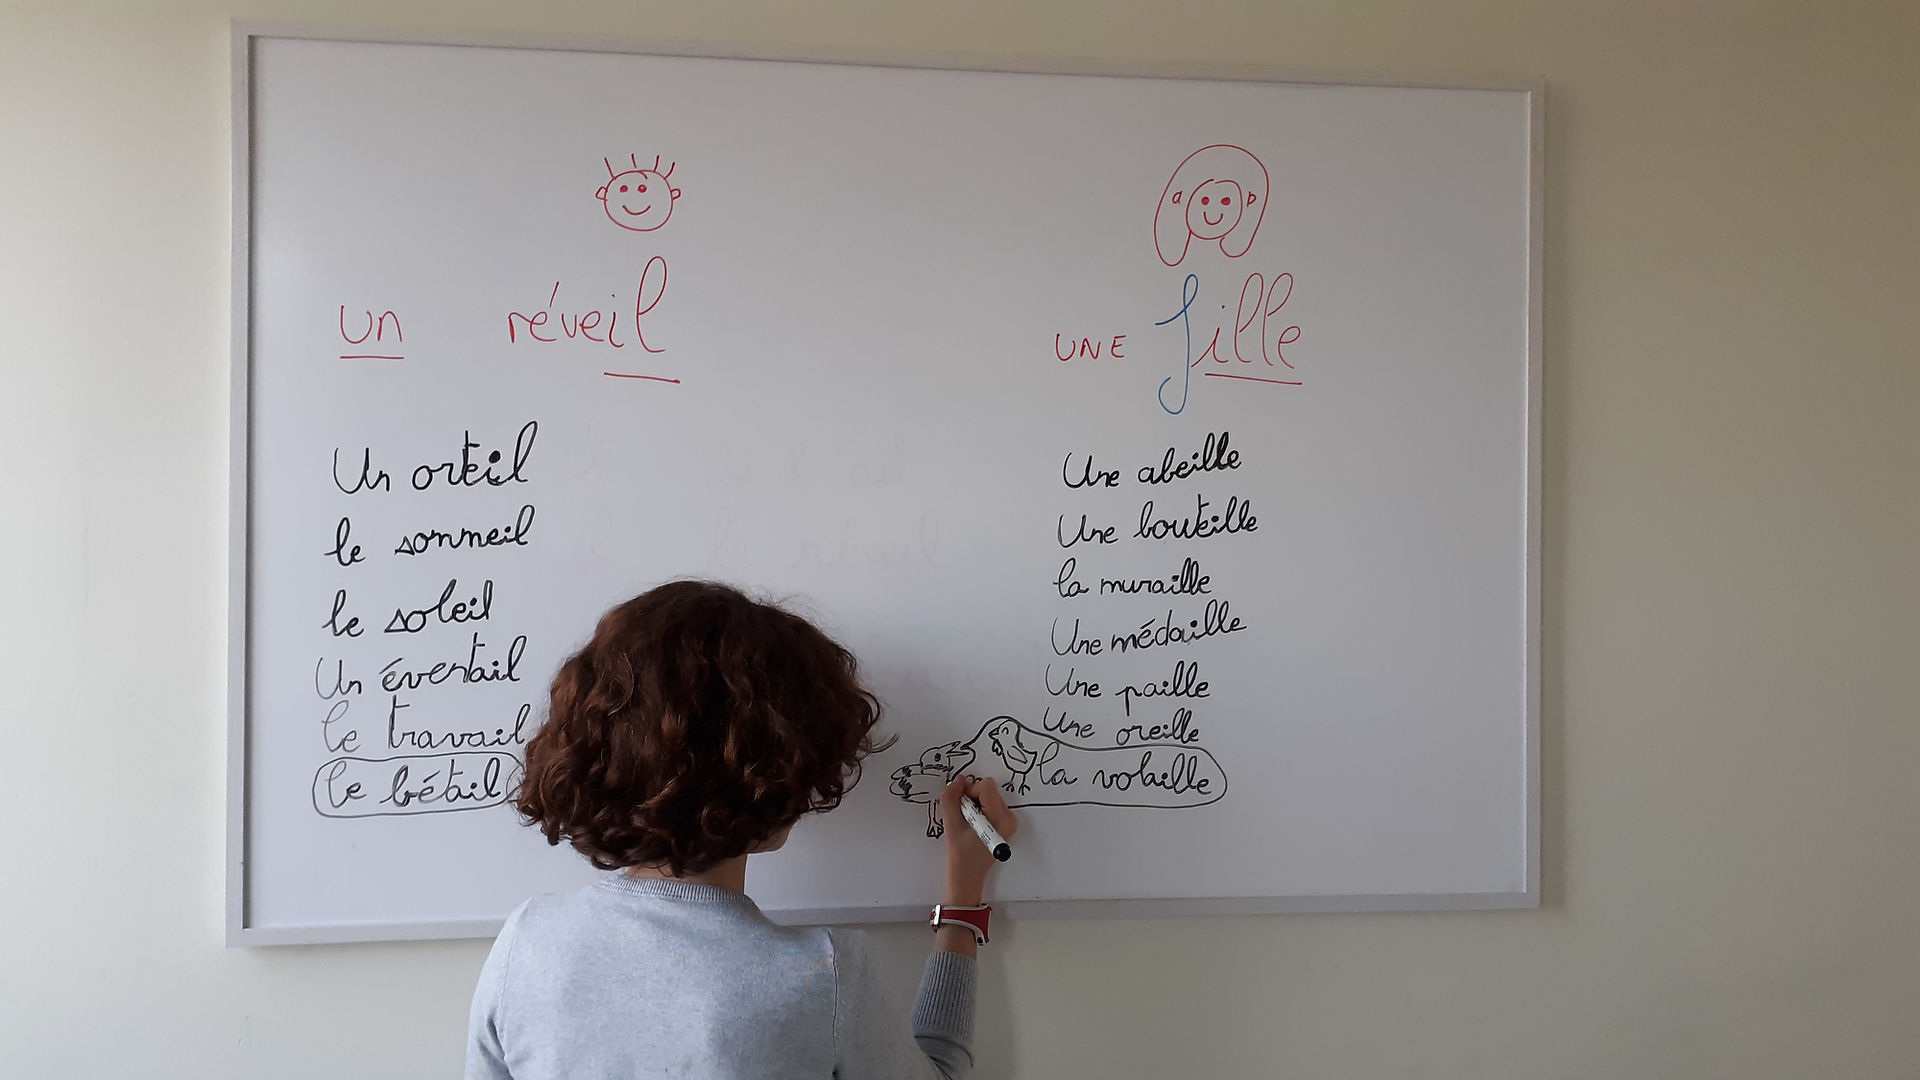 un réveil
Un orteil
le sommeil
le soleil
Un éventail
le travail
le bétail
UNE fille
Une abeille
Une bouteille
la muraille
Une médaille
Une paille
Une oreille
la volaille